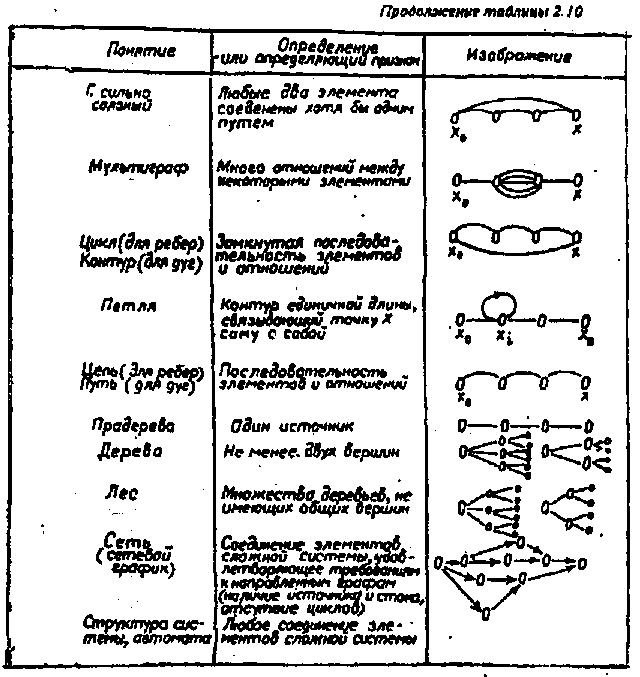 Продолжение таблицы 2.10
Понятие
Определение
или определяющий признак
Изображение
Г. сильно
связный
Любые два элемента
соединены хотя бы одним
путем
X₀ X
Мультиграф
Много отношений между
некоторыми элементами
X₀ X
Цикл (для ребер)
Контур (для дуг)
Замкнутая последова-
тельность элементов
и отношений
X₀ X
Петля
Контур единичной длины,
связывающий точку X
саму с собой
X₀ Xᵢ Xₙ
Цепь (для ребер)
Путь (для дуг)
Последовательность
элементов и отношений
X₀ X
Прадерево
Один источник
Дерево
Не менее двух вершин
Лес
Множество деревьев, не
имеющих общих вершин
Сеть
(сетевой
график)
Соединение элементов
сложной системы, удов-
летворяющее требованиям
к направленным графам
(наличие источника и стока,
отсутствие циклов)
Структура сис-
темы, автомата
Любое соединение эле-
ментов сложной системы